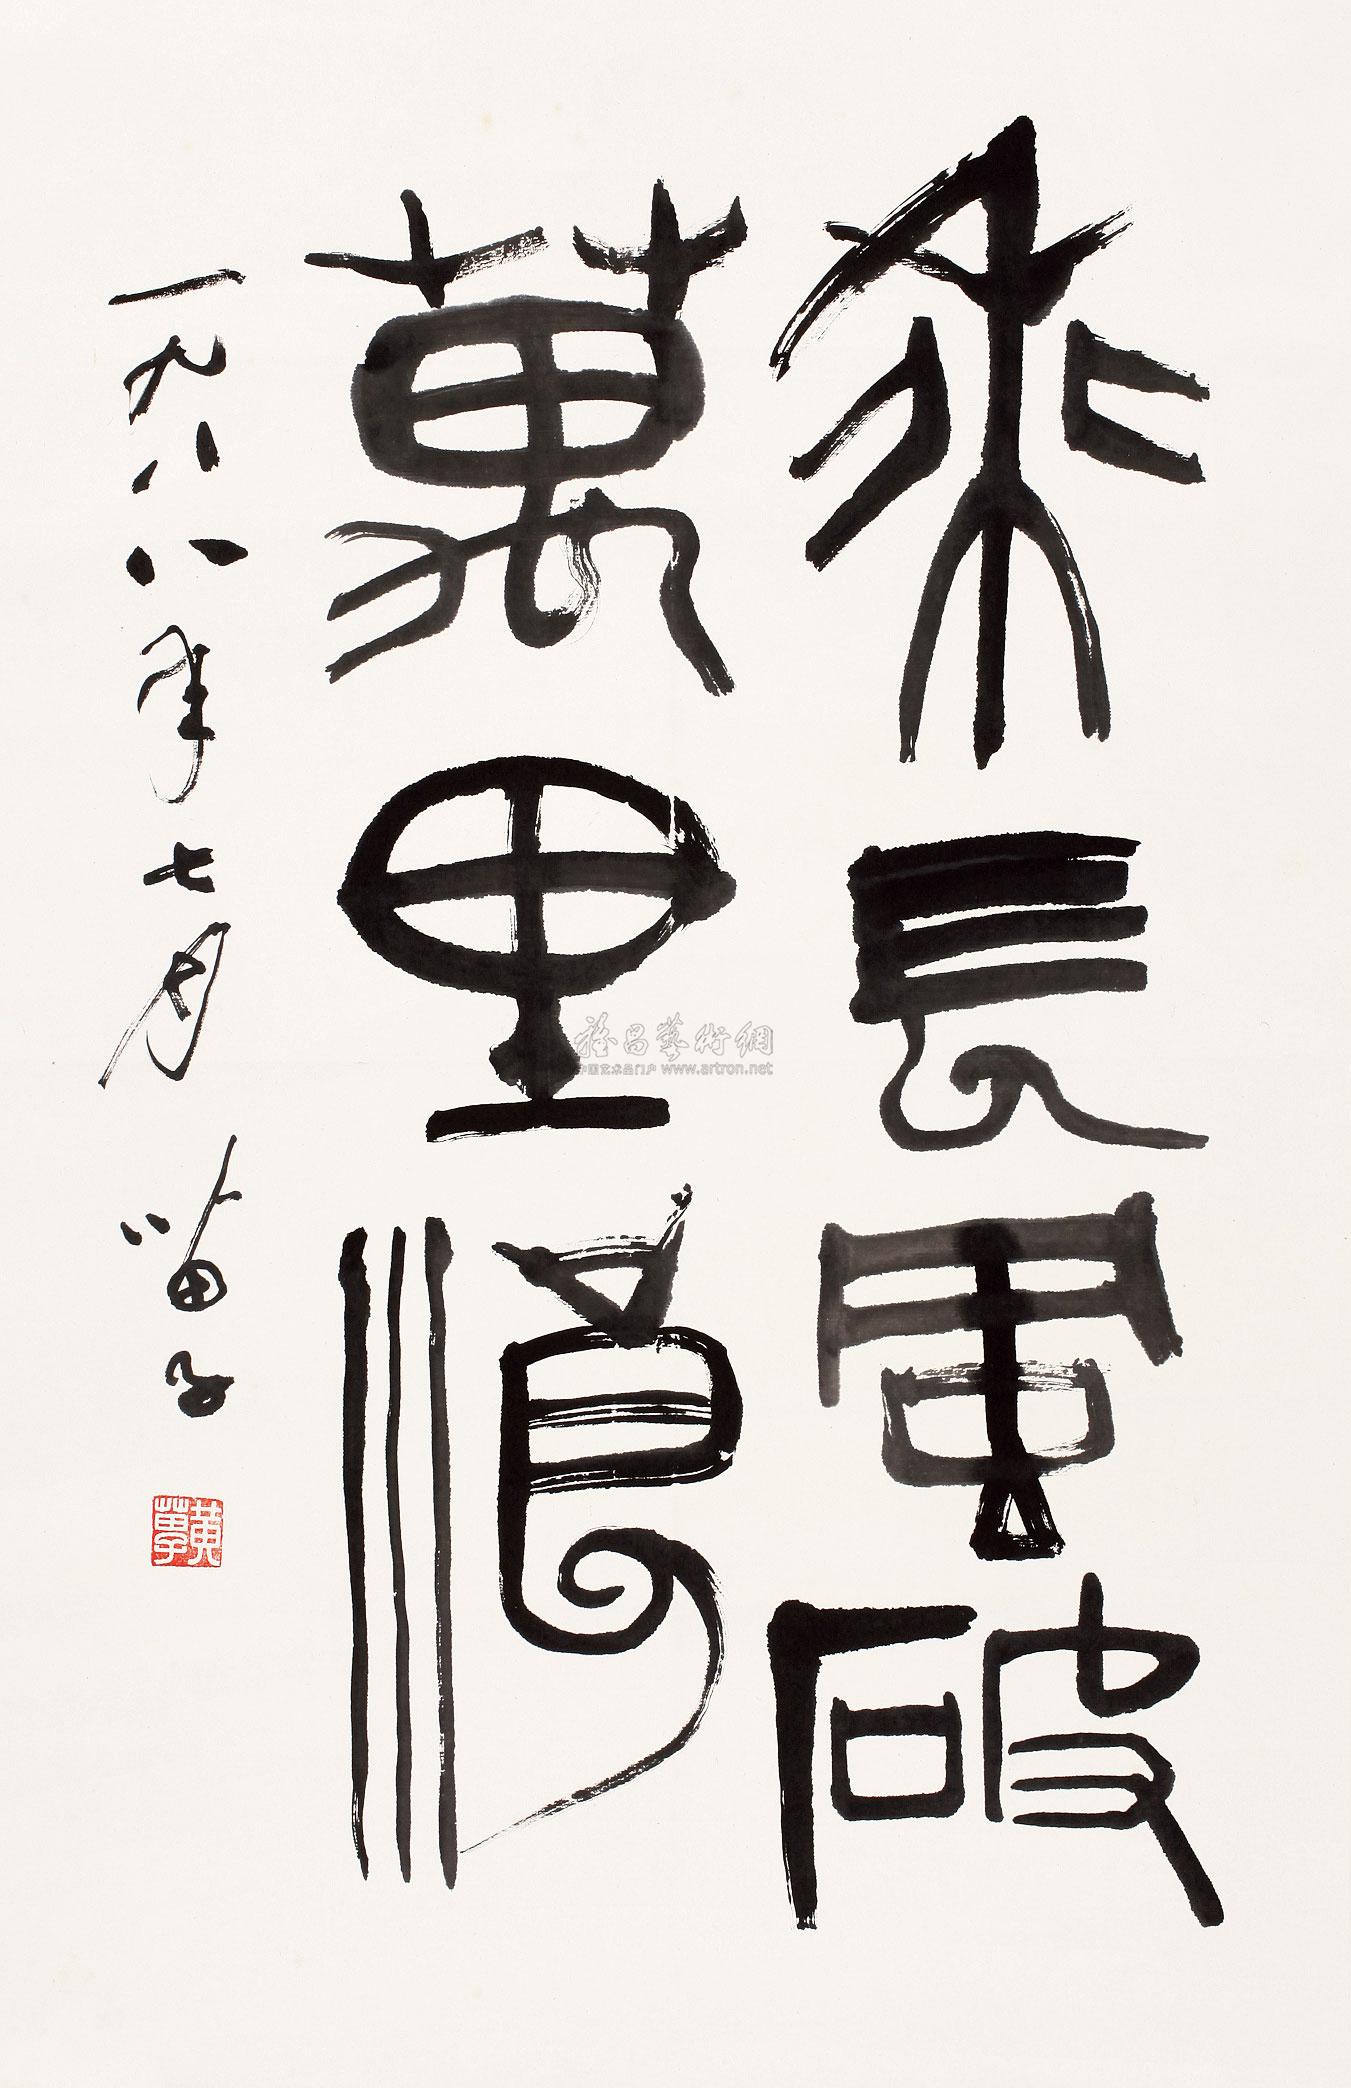 乘長風破
萬里浪
一九八八年七月 苗子
黃苗子
雅昌藝術網
中国艺术品门户 www.artron.net